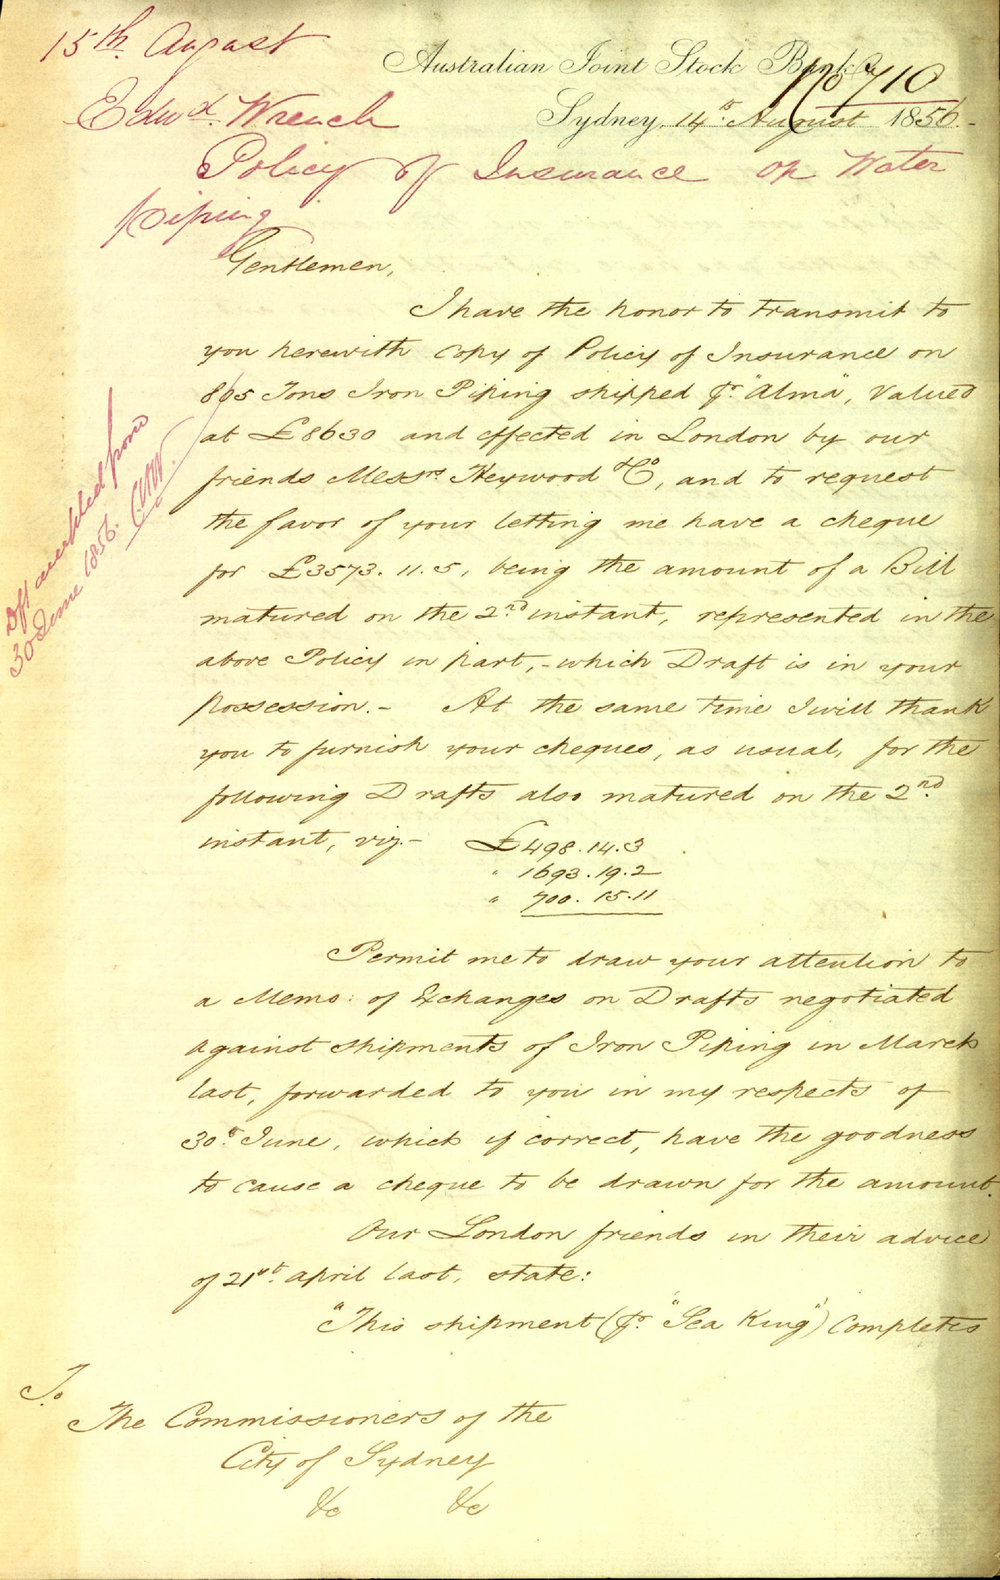 15th. August
Australian Joint Stock Bank
No 710
Edwd. Wrench
Sydney, 14th. August 1856.-
Policy of Insurance on Water
piping
Gentlemen,
I have the honor to transmit to
you herewith copy of Policy of Insurance on
805 Tons Iron Piping shipped pr. "Alma", Valued
at £8630 and effected in London by our
friends Messrs Heywood & Co, and to request
the favor of your letting me have a cheque
for £3573.11.5, being the amount of a Bill
matured on the 2nd instant, represented in the
above Policy in part, - which Draft is in your
possession. - At the same time I will thank
you to furnish your cheques, as usual, for the
following Drafts also matured on the 2nd
instant, viz. - £498.14.3
" 1693.19.2
" 700.15.11
Permit me to draw your attention to
a Memo: of Exchanges on Drafts negotiated
against shipments of Iron Piping in March
last, forwarded to you in my respects of
30th June, which if correct, have the goodness
to cause a cheque to be drawn for the amount.
Our London friends in their advice
of 21st. April last, state:
"This shipment (pr. "Sea King") completes
To
The Commissioners of the
City of Sydney
&c &c
30 June 1856.